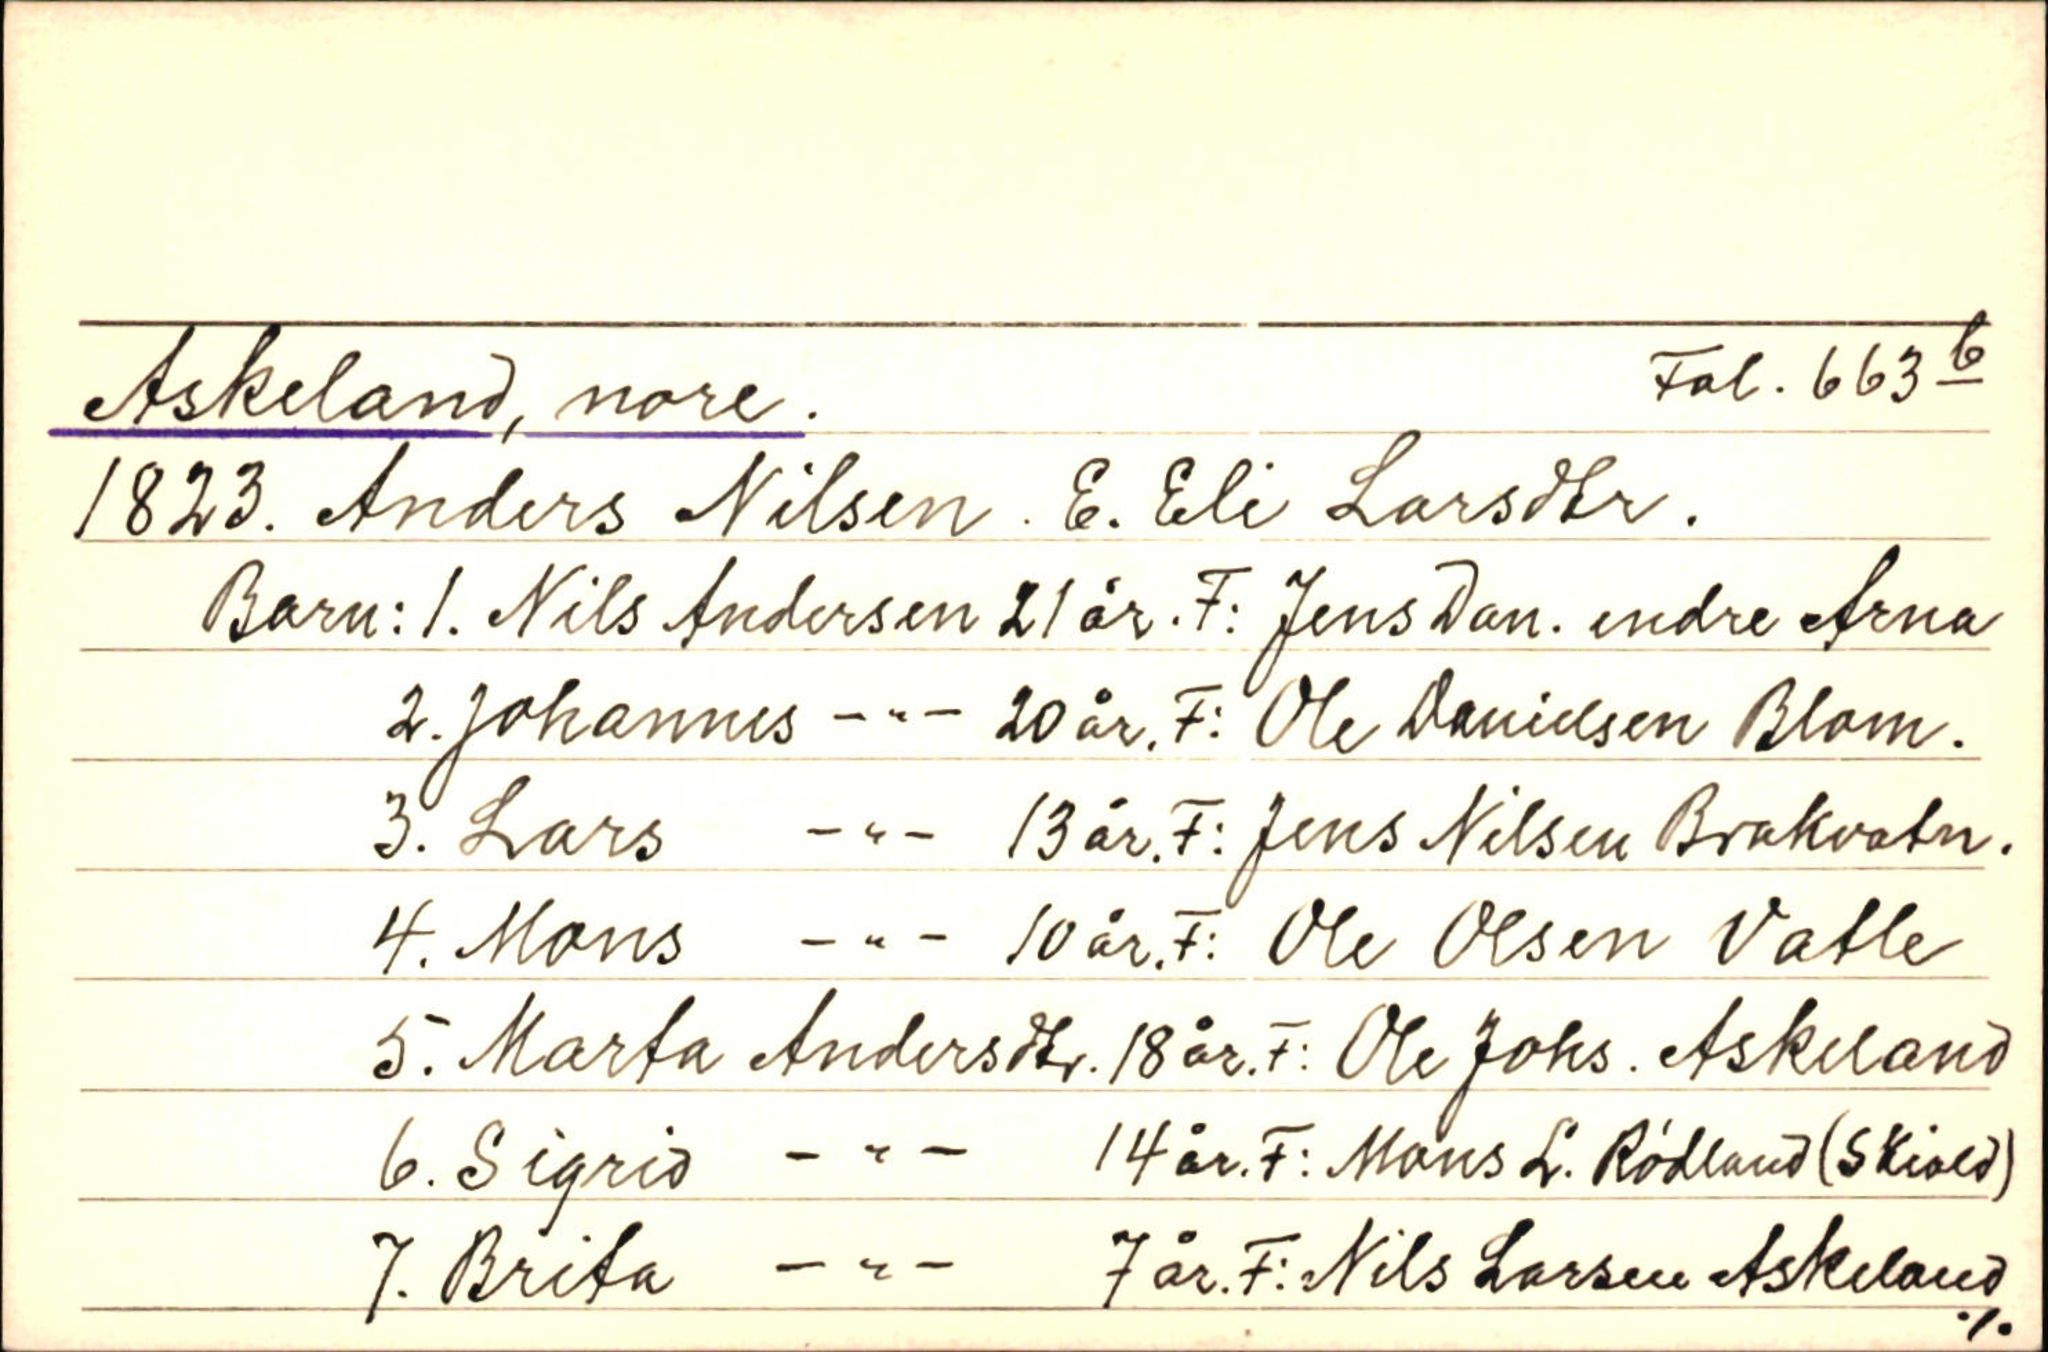 Askeland, nore. Fol. 663 b
1823. Anders Nilsen. E. Eli Larsdtr.
Barn: 1. Nils Andersen 21 år. F: Jens Dan. indre Arna
2. Johannes -"- 20 år. F: Ole Danielsen Blom.
3. Lars -"- 13 år. F: Jens Nilsen Brakvatn.
4. Mons -"- 10 år. F: Ole Olsen Vatle
5. Marta Andersdtr. 18 år. F: Ole Johs. Askeland
6. Sigrid -"- 14 år. F: Mons L. Rødland (Skiold)
7. Brita -"- 7 år. F: Nils Larsen Askeland
./.